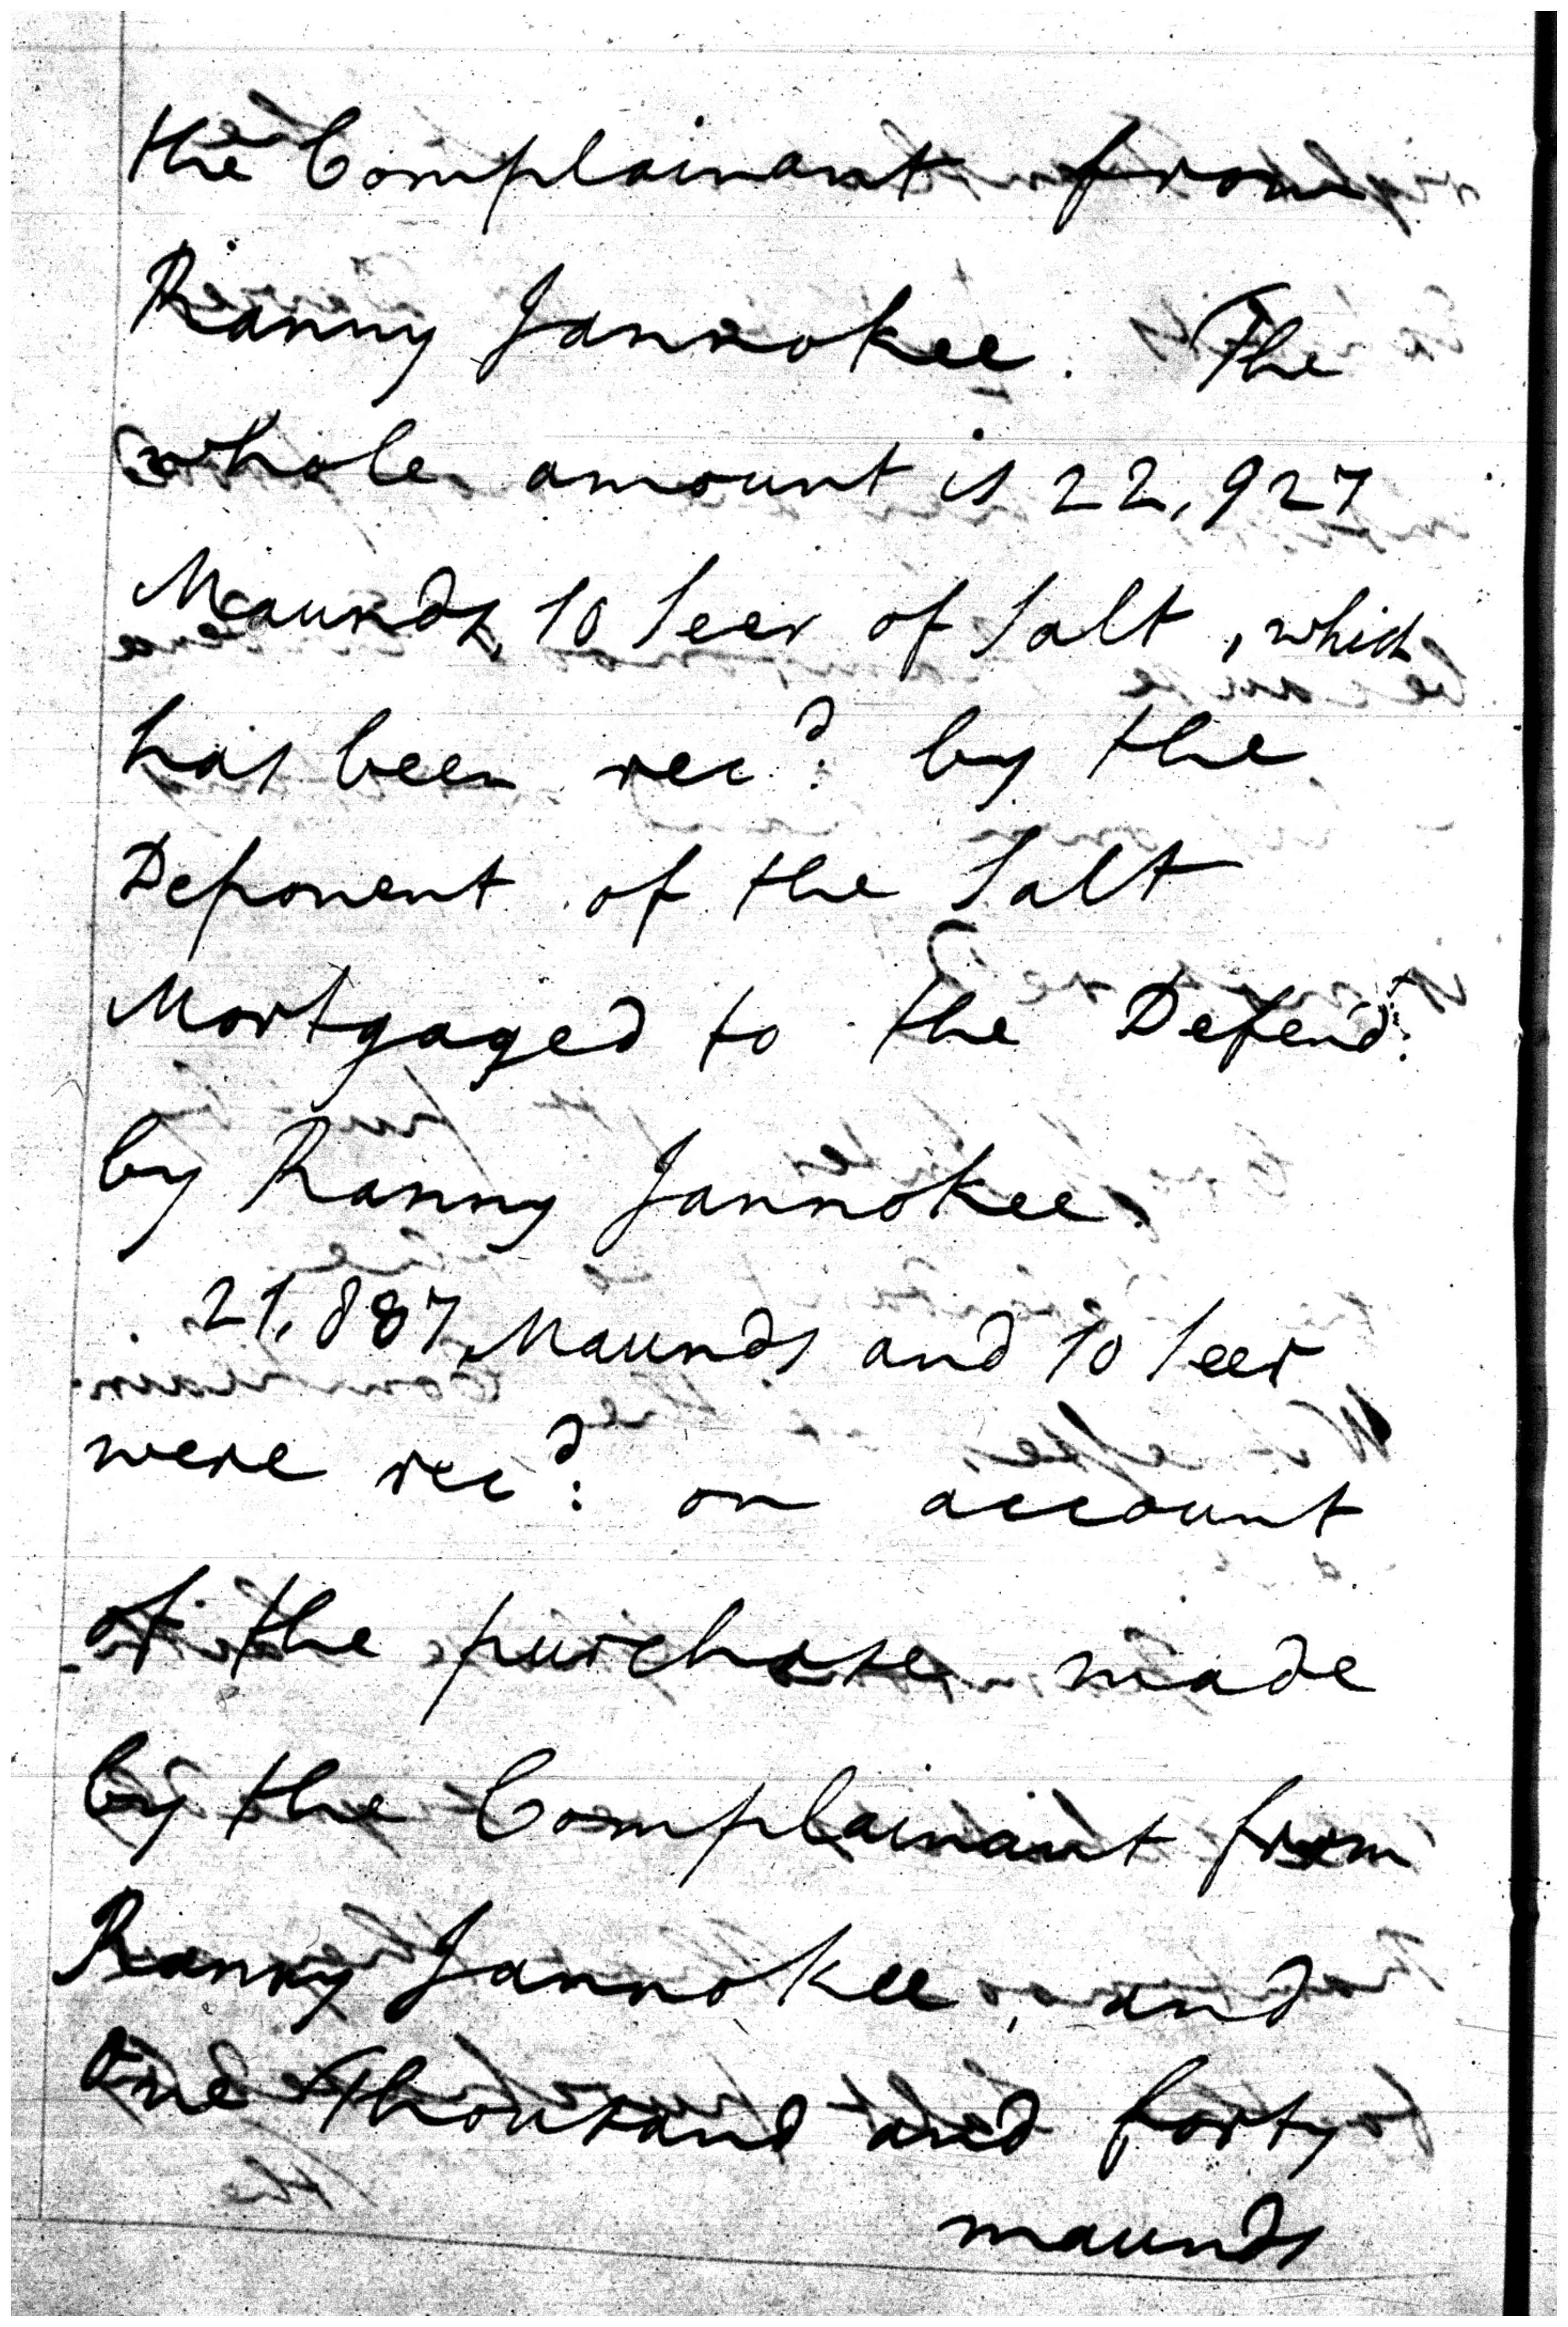 the Complainant from
Ranny Jannokee. The
whole amount is 22,927
Maunds, 10 Seer of Salt, which
has been rec^d: by the
Deponent of the Salt
Mortgaged to the Defend^t:
by Ranny Jannokee.
21,887 Maunds and 10 Seer
were rec^d: on account
of the purchase made
by the Complainant from
Ranny Jannokee, and
One Thousand and forty
maunds